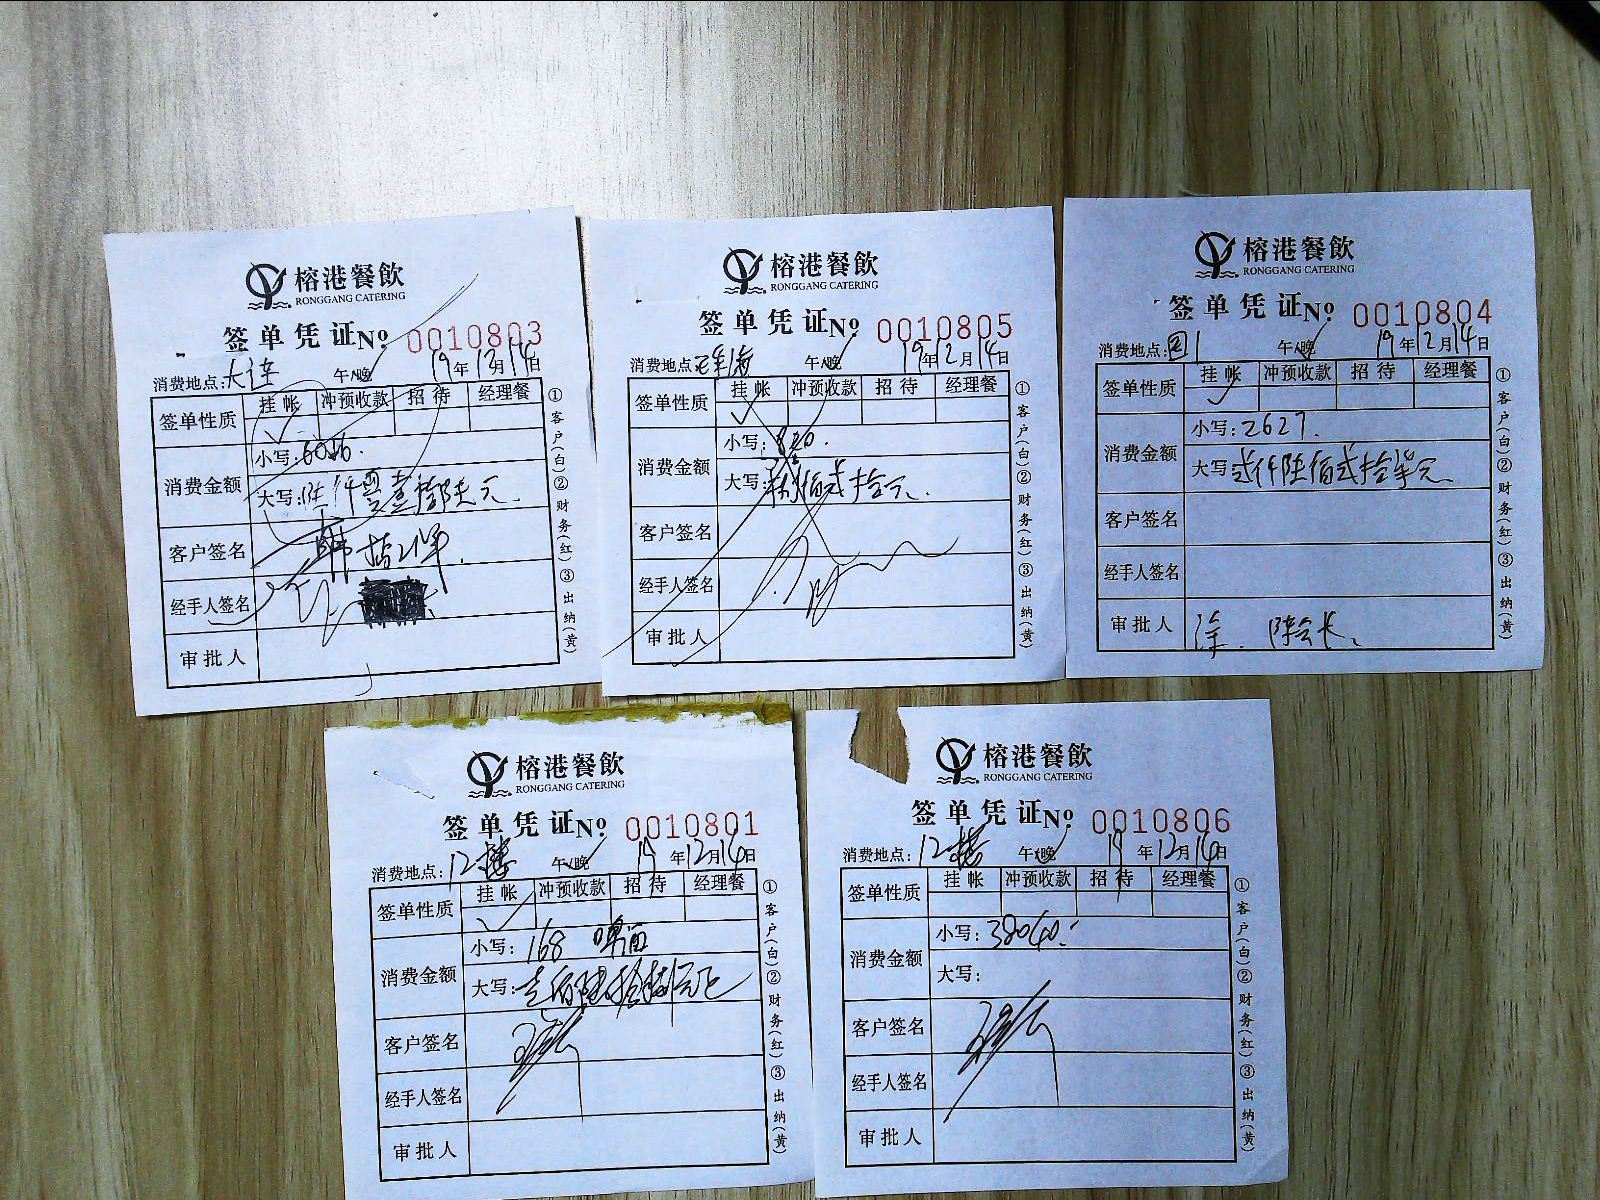 榕港餐飲
RONGGANG CATERING
签单凭证No 0010803
消费地点:大连 午/晚 19年12月14日
签单性质 挂帐 冲预收款 招待 经理餐
消费金额 小写:6016.
大写:陆仟零壹拾陆元
客户签名
经手人签名
审批人
①客户(白)②财务(红)③出纳(黄)
榕港餐飲
RONGGANG CATERING
签单凭证No 0010805
消费地点: 午/晚 19年12月14日
签单性质 挂帐 冲预收款 招待 经理餐
消费金额 小写:820.
大写:捌佰贰拾元.
客户签名
经手人签名
审批人
①客户(白)②财务(红)③出纳(黄)
榕港餐飲
RONGGANG CATERING
签单凭证No 0010804
消费地点: 午/晚 19年12月14日
签单性质 挂帐 冲预收款 招待 经理餐
消费金额 小写:2627.
大写:贰仟陆佰贰拾柒元.
客户签名
经手人签名
审批人 涂. 陈会长.
①客户(白)②财务(红)③出纳(黄)
榕港餐飲
RONGGANG CATERING
签单凭证No 0010801
消费地点:12楼 午/晚 19年12月14日
签单性质 挂帐 冲预收款 招待 经理餐
消费金额 小写:168 啤酒
大写:壹佰陆拾捌元正
客户签名
经手人签名
审批人
①客户(白)②财务(红)③出纳(黄)
榕港餐飲
RONGGANG CATERING
签单凭证No 0010806
消费地点:12楼 午/晚 19年12月14日
签单性质 挂帐 冲预收款 招待 经理餐
消费金额 小写:38040.
大写:
客户签名
经手人签名
审批人
①客户(白)②财务(红)③出纳(黄)